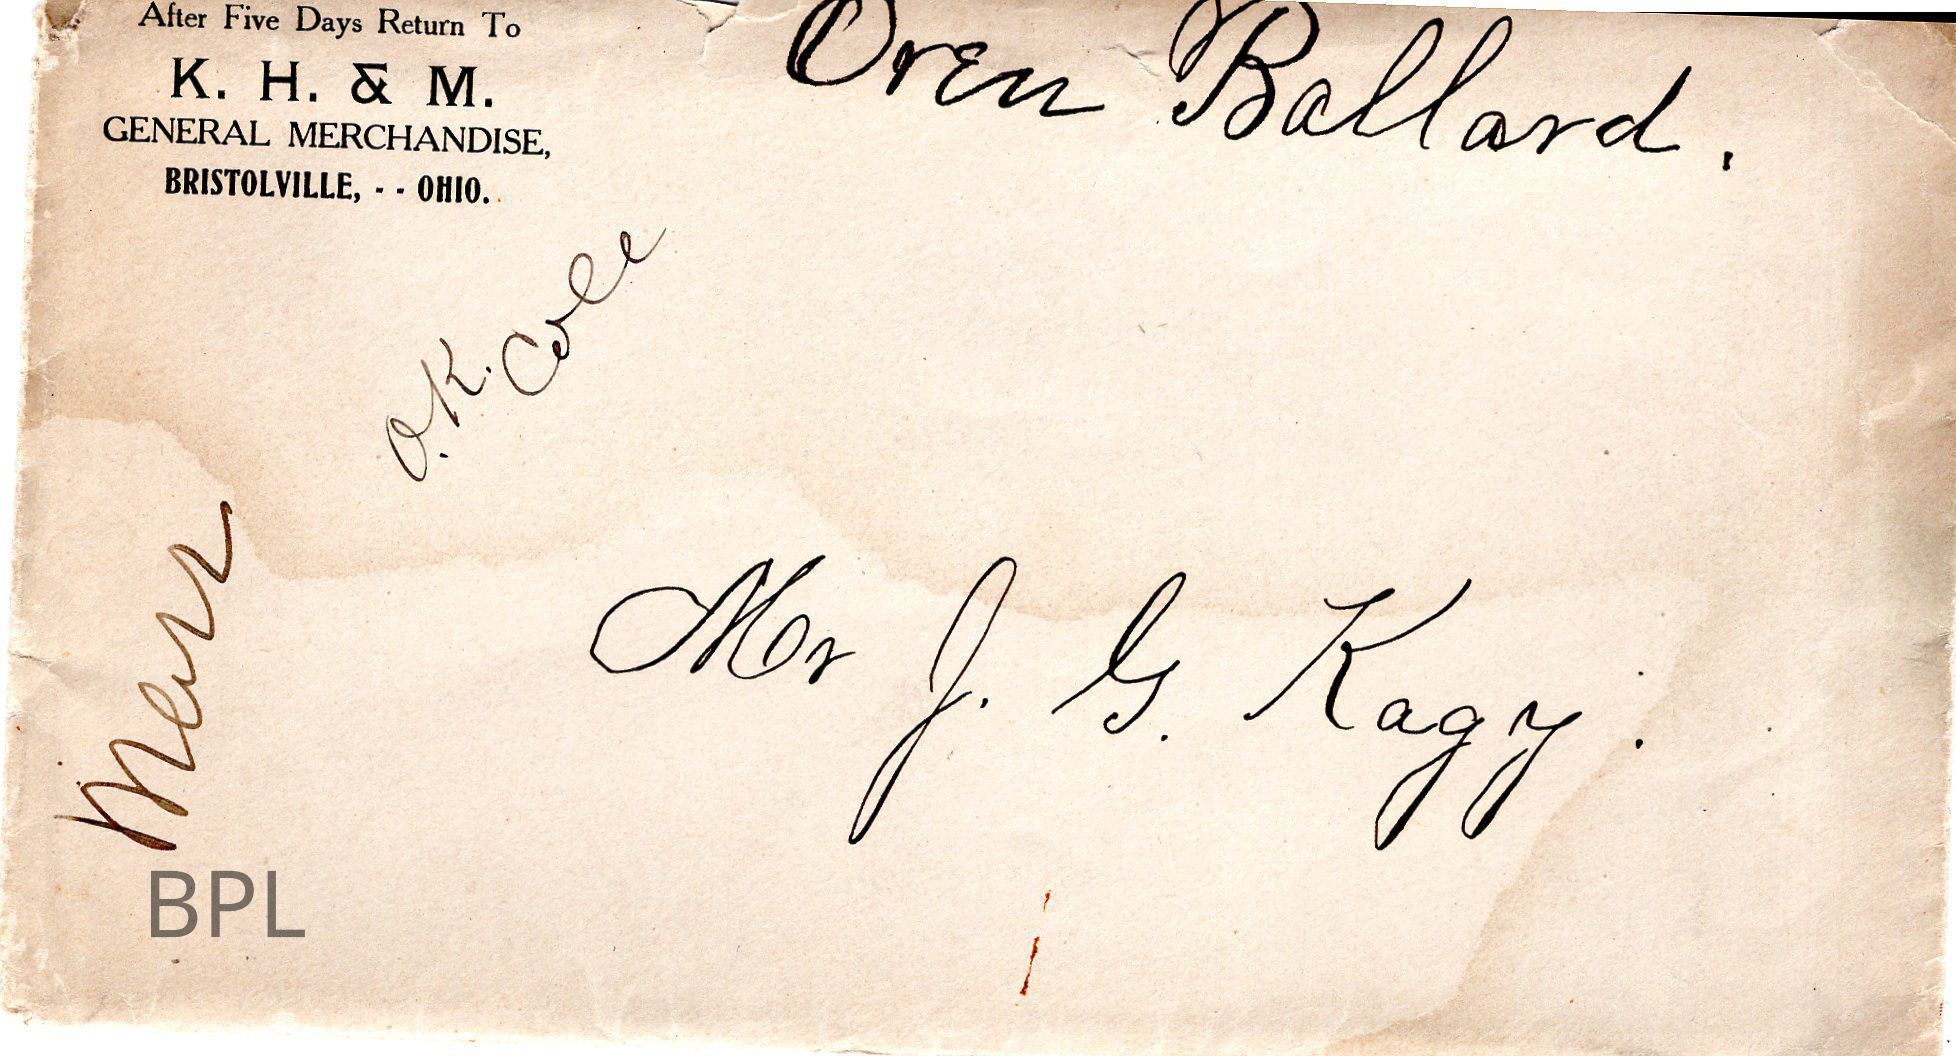 After Five Days Return To
K. H. & M.
GENERAL MERCHANDISE,
BRISTOLVILLE, - - OHIO.
Oren Ballard.
O.K. Cole
Merr
Mr J. G. Kagy.
BPL